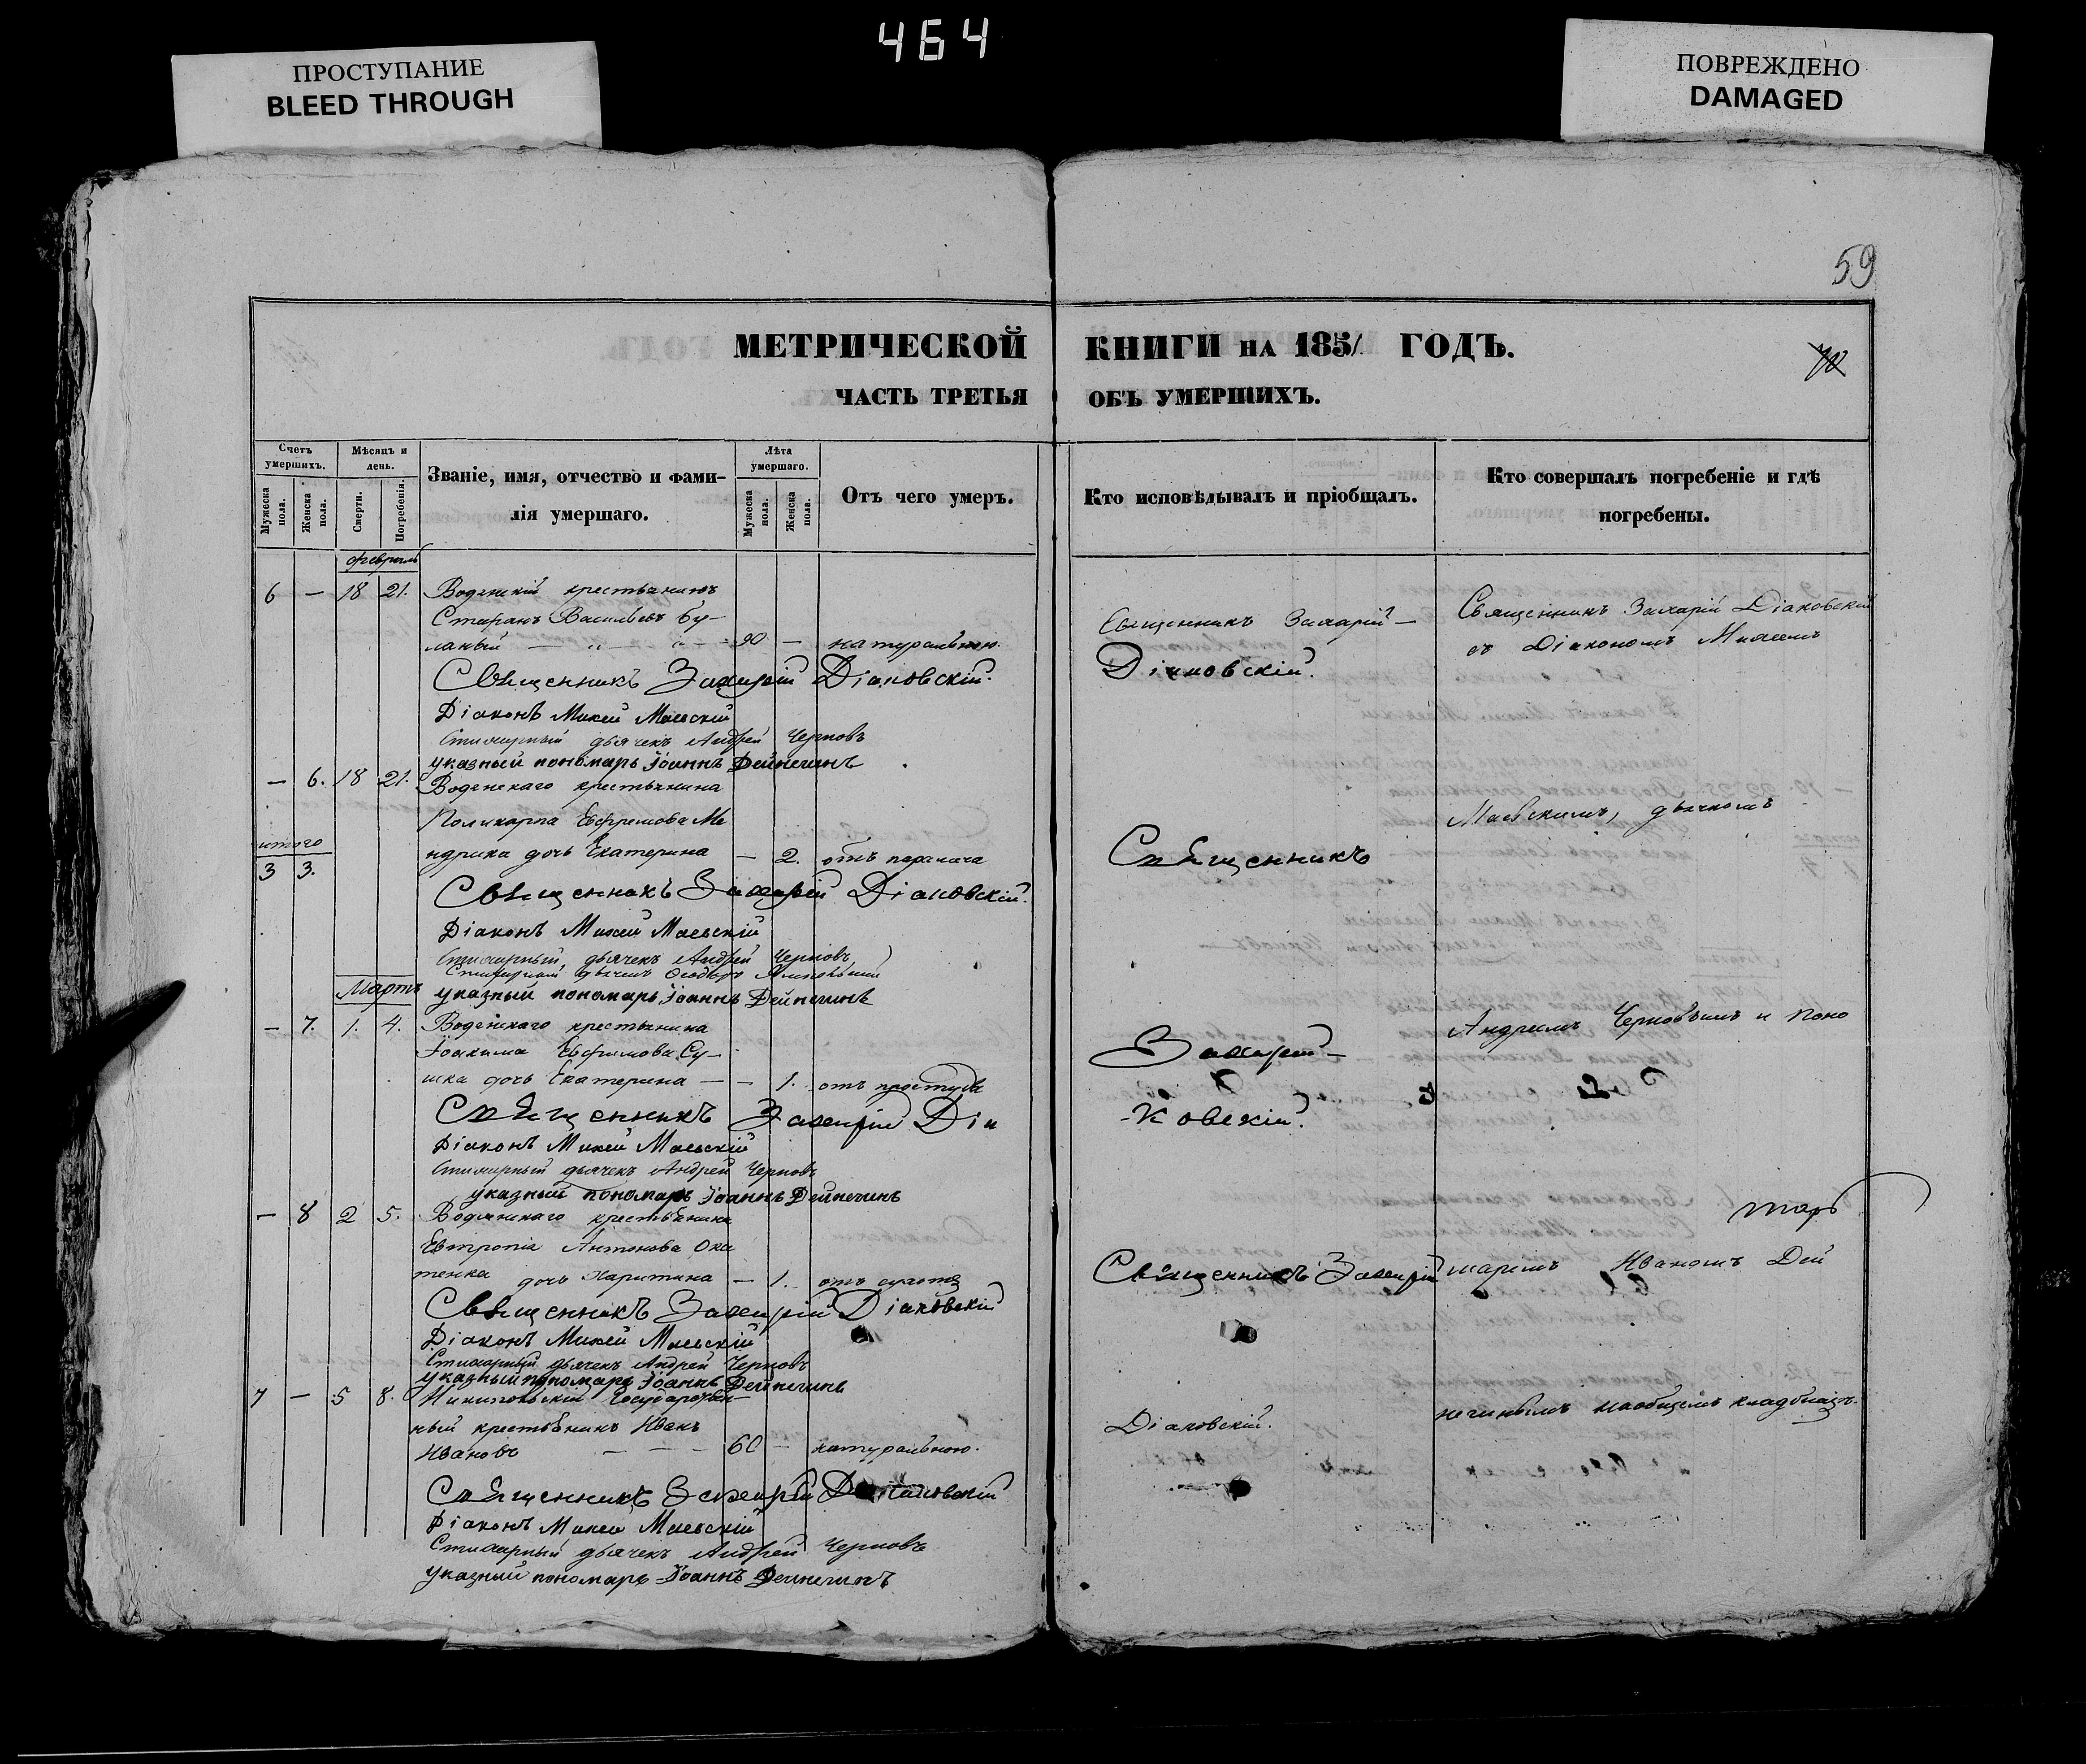 464
ПРОСТУПАНИЕ
BLEED THROUGH
ПОВРЕЖДЕНО
DAMAGED
59
МЕТРИЧЕСКОЙ КНИГИ НА 1851 ГОДЪ.
ЧАСТЬ ТРЕТЬЯ ОБЪ УМЕРШИХЪ.
Счетъ умершихъ.
Мужеска пола.
Женска пола.
Мѣсяцъ и день.
Смерти.
Погребенія.
Званіе, имя, отчество и фами-
лія умершаго.
Лѣта умершаго.
Мужеска пола.
Женска пола.
Отъ чего умеръ.
Кто исповѣдывалъ и пріобщалъ.
Кто совершалъ погребеніе и гдѣ
погребены.
февраль
6 — 18 21. Водянскій крестьянинъ
Стефанъ Васильевъ Бу-
ланый — 90 — натуральною.
Священникъ Захарій Діаковскій.
Діаконъ Михей Маевскій
Стихарный дьячекъ Андрей Черновъ
указный пономарь Іоаннъ Дейнечинъ
— 6. 18 21. Водянскаго крестьянина
Поликарпа Евфремова Ме
ндрика дочь Екатерина — 2. отъ паралича
итого
3 3.
Священникъ Захарій Діаковскій.
Діаконъ Михей Маевскій
Стихарный дьячекъ Андрей Черновъ
указный пономарь Іоаннъ Дейнечинъ
Мартъ
— 7. 1. 4. Водянскаго крестьянина
Іоакима Евфимова Су-
шка дочь Екатерина — — 1. отъ простуды
Священникъ Захарій Діа
Діаконъ Михей Маевскій
Стихарный дьячекъ Андрей Черновъ
указный пономарь Іоаннъ Дейнечинъ
— 8 2 5. Водянскаго крестьянина
Евтропія Антонова Ока
тенка дочь Харитина — 1. отъ
Священникъ Захарій Діаковскій
Діаконъ Михей Маевскій
Стихарный дьячекъ Андрей Черновъ
указный пономарь Іоаннъ Дейнечинъ
7 — 5 8. Никитовскій Государствен-
ный крестьянинъ Иванъ
Ивановъ — — — 60 — натуральною.
Священникъ Захарій Діаковскій
Діаконъ Михей Маевскій
Стихарный дьячекъ Андрей Черновъ
указный пономарь Іоаннъ Дейнечинъ
Священникъ Захарій —
Діаковскій.
Священникъ
Захарій —
-ковскій.
Священникъ Захарій
Діаковскій.
Священникъ Захарій Діаковскій
съ Діакономъ Михеемъ
Маевскимъ, дьячкомъ
Андреемъ Черновымъ и поно
марь
маремъ Иваномъ Дей
нечинымъ на общемъ кладбищѣ.